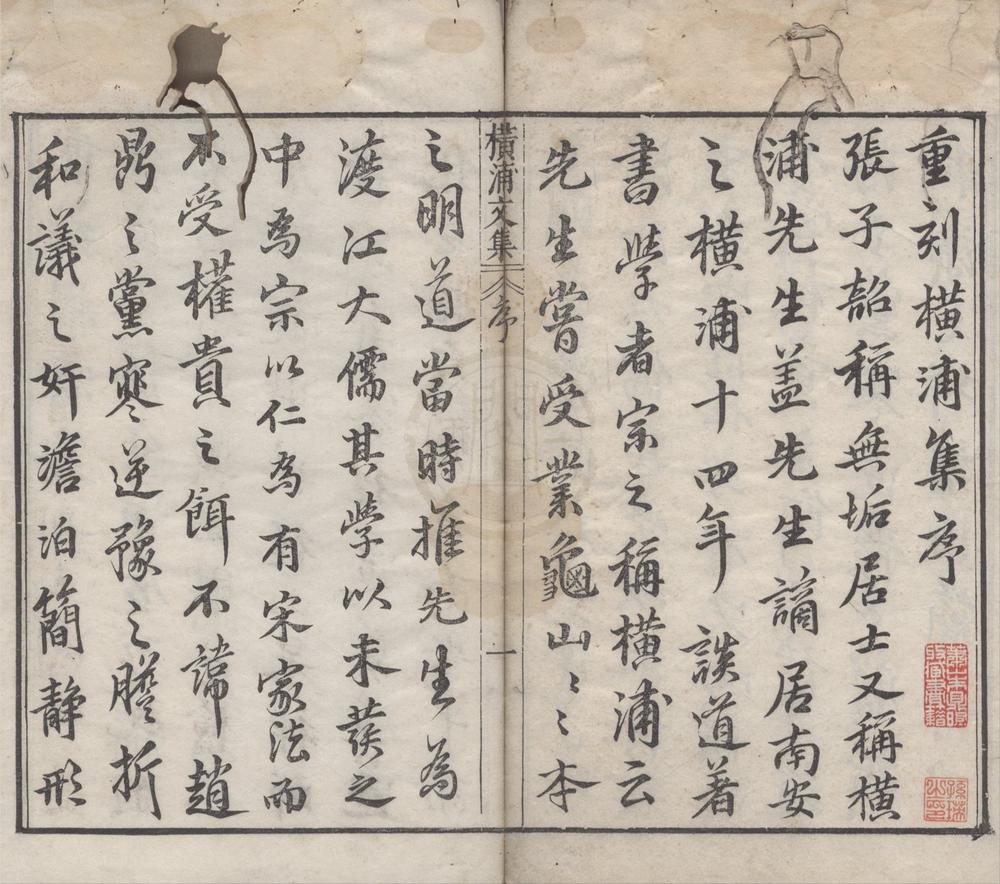 重刻橫浦集序
張子韶稱無垢居士又稱橫
浦先生蓋先生謫居南安
之橫浦十四年談道著
書學者宗之稱橫浦云
先生嘗受業龜山〻〻本
橫浦文集 序 一
之明道當時推先生為
渡江大儒其學以未發之
中為宗以仁為有宋家法而
不受權貴之餌不諱趙
鼎之黨寒逆豫之膽折
和議之奸澹泊簡靜形